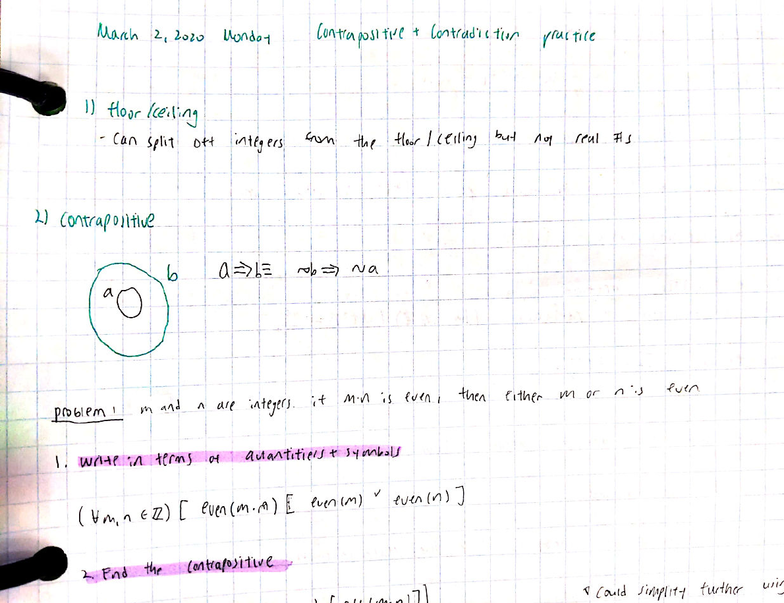 March 2, 2020 Monday Contrapositive + Contradiction practice
1) floor/ceiling
- Can split off integers from the floor/ceiling but not real #s
2) contrapositive
a b a⇒b≡ ~b⇒ ~a
problem: m and n are integers. if m·n is even, then either m or n is even
1. Write in terms of quantifiers + symbols
(∀m,n ∈ ℤ) [ even(m·n) [ even(m) ∨ even(n) ]
2. Find the contrapositive
* Could simplify further